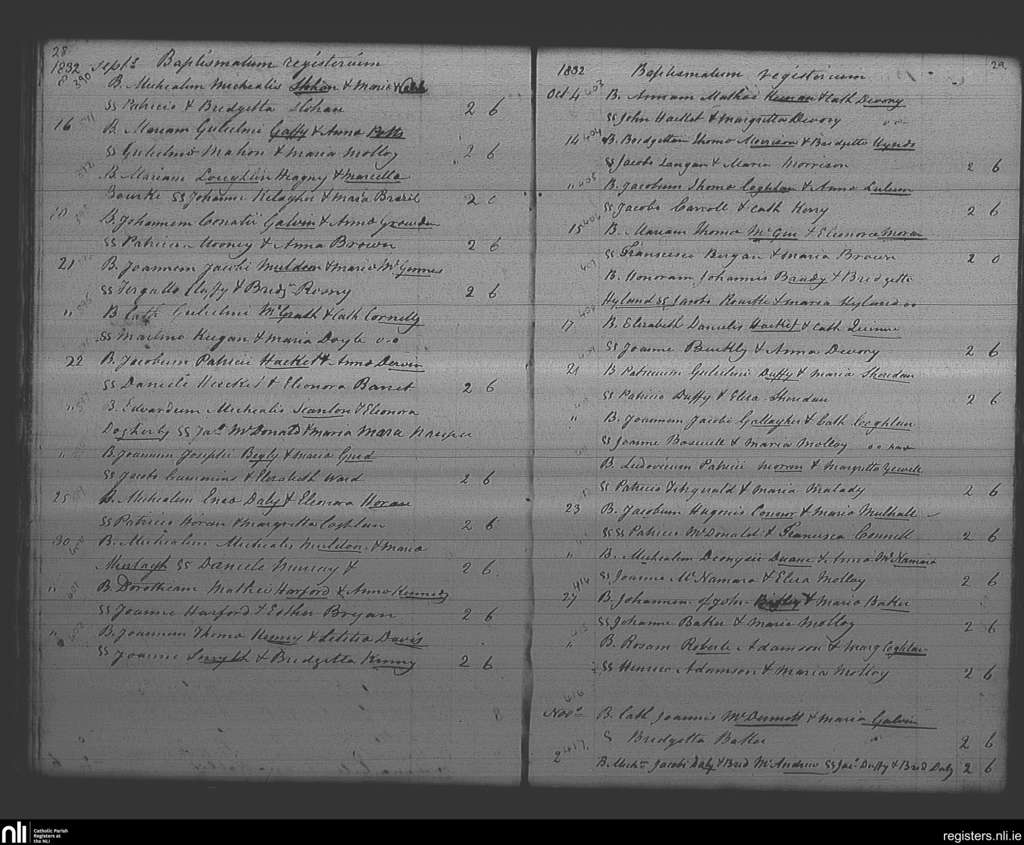 28
1832 Septr Baptismatum registerium
8 390 B. Michealem Michealis Slohan & Maria
SS Patricio & Bridgetta Slohan 2 6
16 B. Mariam Gulielmi Gaffy & Anna
SS Gulielmo Mahon & Maria Molloy 2 6
B. Mariam Loughlin Magny & Marcella
Bourke SS Johanne Kelagher & Maria Brazil 2 0
B. Johannem Conatii Galvin & Anna Growden
SS Patricio Mooney & Anna Brown 2 6
21 B. Joannem Jacobi Muldoon & Maria
SS Fergallo Fluffy & Bridj Rosny 2 6
" B. Cath Gulielmi McGrath & Cath Cornelly
SS Martino Keegan & Maria Doyle o-o
22 B. Jacobum Patricii Hacket & Anna Derwin
SS Daniele & Elonora Barret 2 6
" B. Edwardum Michealis Scanlon & Eleonora
Dogherty SS Jas McDonald & Maria Mara
" B. Joannem Josephi Begly & Maria
SS Jacobo Cummins & Elizabeth Ward 2 6
25 B. Michealem Enea Daly & Eleonora Horan
SS Patricio Horan & Margretta Coghlan 2 6
30 B. Michealem Michealis Muldon & Maria
Murtagh SS Daniele Murray & 2 6
" B. Dorotheam Mathei Harford & Anna Kennedy
SS Joanne Harford & Esther Bryan 2 6
" B. Joannem Thoma Kenny & Letitia Davis
SS Joanne Smyth & Bridgetta Kenny 2 6
29
1832 Baptismatum registerium
Oct 4 403 B. Annam Mathei & Cath Devony
SS John Hacket & Margretta Devony o-o
14 404 B. Bridgettam Thoma Morrison & Bridgetta Hynds
SS Jacobo Langan & Maria Morrison 2 6
" 405 B. Jacobum Thoma Coghlan & Anna
SS Jacobo Carroll & Cath Kerry 2 6
15 406 B. Mariam Thoma McGee & Eleonora Moran
SS Francesco Bergan & Maria Brown 2 0
B. Honoram Johannis Brady & Bridgetta
Hyland SS Jacobo Rourke & Maria Hyland oo
17 B. Elizabeth Danielis Hacket & Cath
SS Joanne Buckly & Anna Devony 2 6
21 B. Patricium Gulielmi Duffy & Maria Sheridan
SS Patricio Duffy & Eliza Sheridan 2 6
" B. Joannem Jacobi Gallagher & Cath Coghlan
SS Joanne Boswell & Maria Molloy o o
B. Ludovicum Patricii Morron & Margretta
SS Patricio Fitzgerald & Maria Malady 2 6
23 B. Jacobum Hugonis Connor & Maria Mulhall
SS Patricio McDonald & Francisca Connell 2 6
" B. Michealem Dionysii Duane & Anna McNamara
SS Joanne McNamara & Eliza Molloy 2 6
27 414 B. Johannem of John & Maria Baker
SS Johanne Baker & Maria Molloy 2 6
" B. Rosam Roberti Adamson & Marg Coghlan
SS Henrico Adamson & Maria Molloy 2 6
416
Novr B. Cath Joannis McDermott & Maria Galvin
S Bridgetta Baker 2 6
2 417 B. Mich Jacobi Daly & Brid McAndrew SS Jas Duffy & Brid Daly 2 6
nli Catholic Parish Registers at the NLI
registers.nli.ie